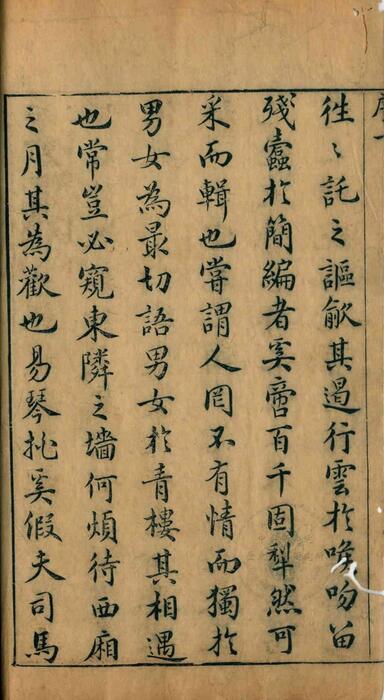 徃〻託之謳歈其遏行雲於喉吻留
殘蠹於簡編者奚啻百千固犁然可
采而輯也嘗謂人罔不有情而獨於
男女為最切語男女於青樓其相遇
也常豈必窺東隣之墻何煩待西廂
之月其為歡也易琴挑奚假夫司馬